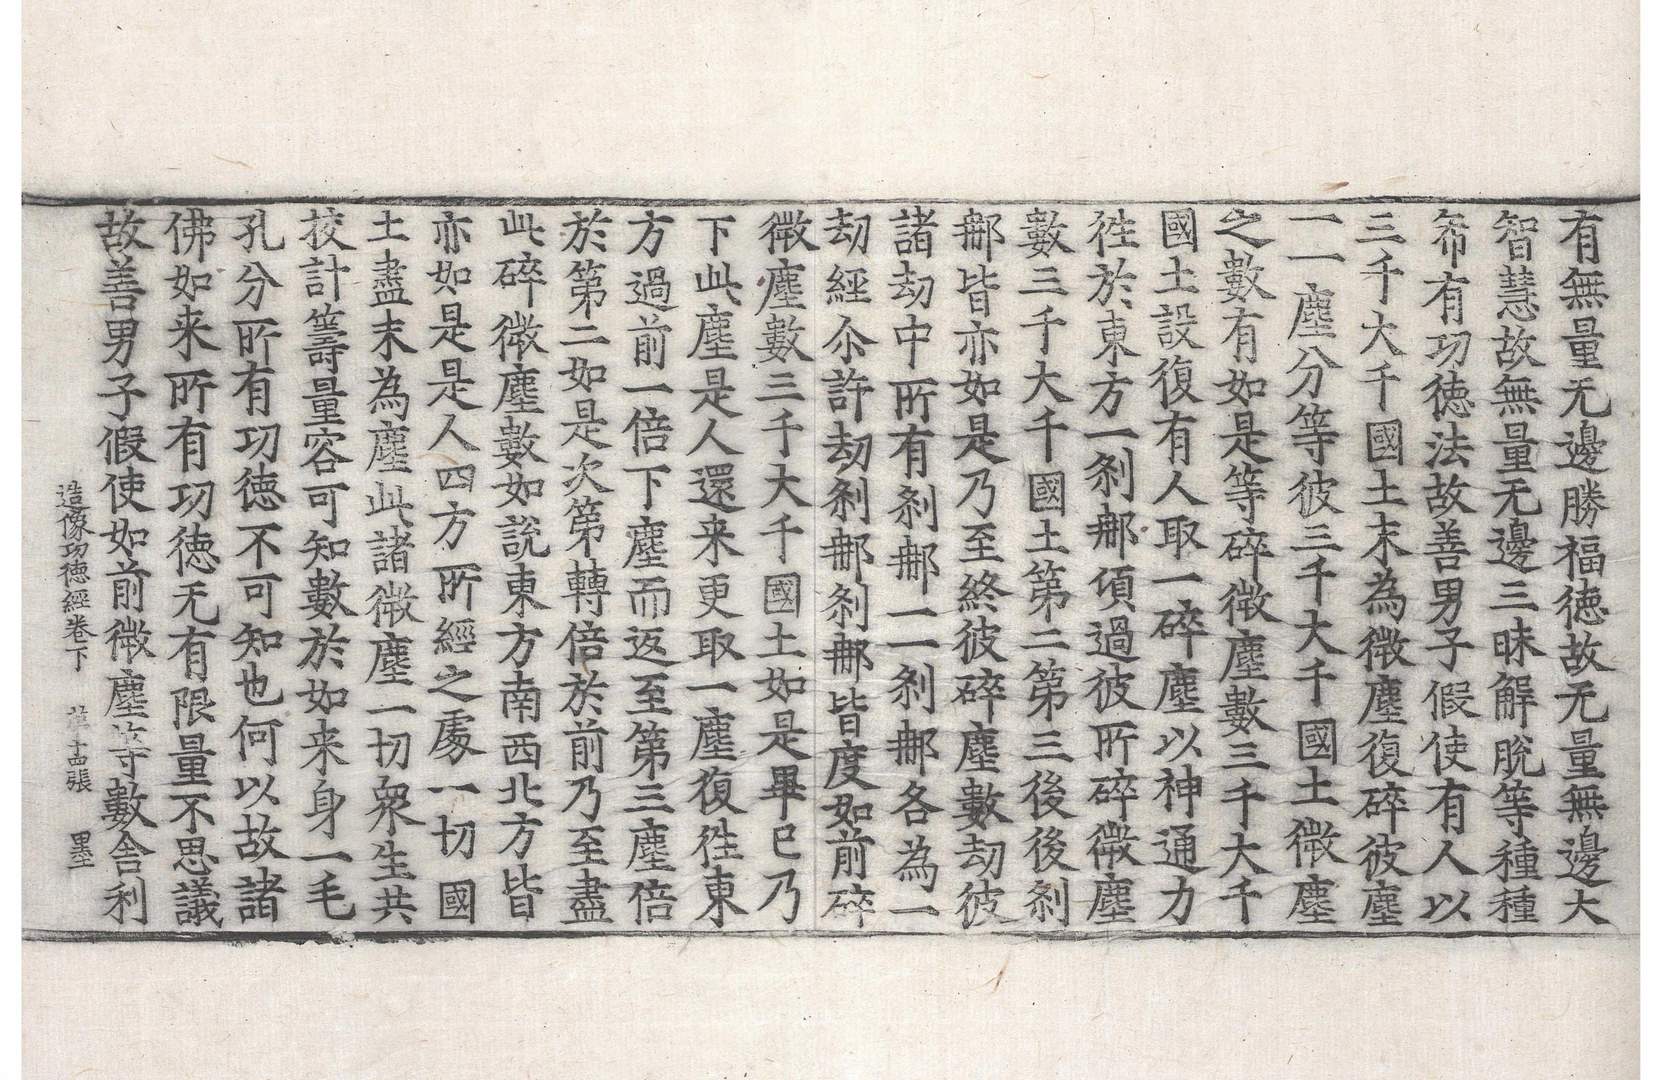 有無量无邊勝福徳故无量無邊大
智慧故無量无邊三昧解脫等種種
希有功徳法故善男子假使有人以
三千大千國土末為微塵復碎彼塵
一一塵分等彼三千大千國土微塵
之數有如是等碎微塵數三千大千
國土設復有人取一碎塵以神通力
徃於東方一剎䣋項過彼所碎微塵
數三千大千國土第二第三後後剎
䣋皆亦如是乃至終彼碎塵數劫彼
諸劫中所有剎䣋一一剎䣋各為一
劫經尒許劫剎䣋剎䣋皆度如前碎
微塵數三千大千國土如是畢已乃
下此塵是人還来更取一塵復徃東
方過前一倍下塵而返至第三塵倍
於第二如是次第轉倍於前乃至盡
此碎微塵數如說東方南西北方皆
亦如是是人四方所經之處一切國
土盡末為塵此諸微塵一切衆生共
挍計籌量容可知數於如来身一毛
孔分所有功徳不可知也何以故諸
佛如来所有功徳无有限量不思議
故善男子假使如前微塵等數舍利
造像功徳經卷下 十四張 墨